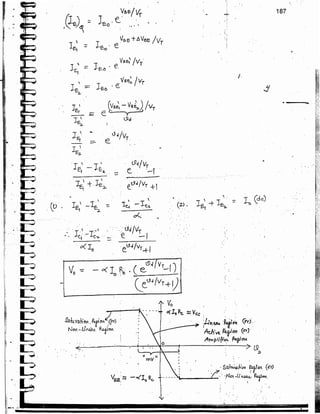 187
(I_E) = I_E0 · e^(V_BE/V_T)
I_E1 = I_E0 · e^(V_BE + ΔV_BE /V_T)
I_E1 = I_E0 · e^(V_BE1/V_T)
I_E2 = I_E0 · e^(V_BE2/V_T)
I_E1 / I_E2 = e^((V_BE1 − V_BE2)/V_T)
I_E1 / I_E2 = e^(υd/V_T)
(I_E1 − I_E2) / (I_E1 + I_E2) = (e^(υd/V_T) − 1) / (e^(υd/V_T) + 1)
(1). I_E1 − I_E2 = (I_C1 − I_C2) / α (2). I_E1 + I_E2 = I_0 (dc)
∴ (I_C1 − I_C2) / (α I_0) = (e^(υd/V_T) − 1) / (e^(υd/V_T) + 1)
V_0 = − α I_0 R_C · (e^(υd/V_T) − 1) / (e^(υd/V_T) + 1)
V_0
α I_0 R_C = V_CC
Saturation Region (or)
Non-Linear Region
Linear Region (or)
Active Region (or)
Amplifier Region
0
υd
Saturation Region (or)
Non-Linear Region
V_EE = − α I_0 R_C